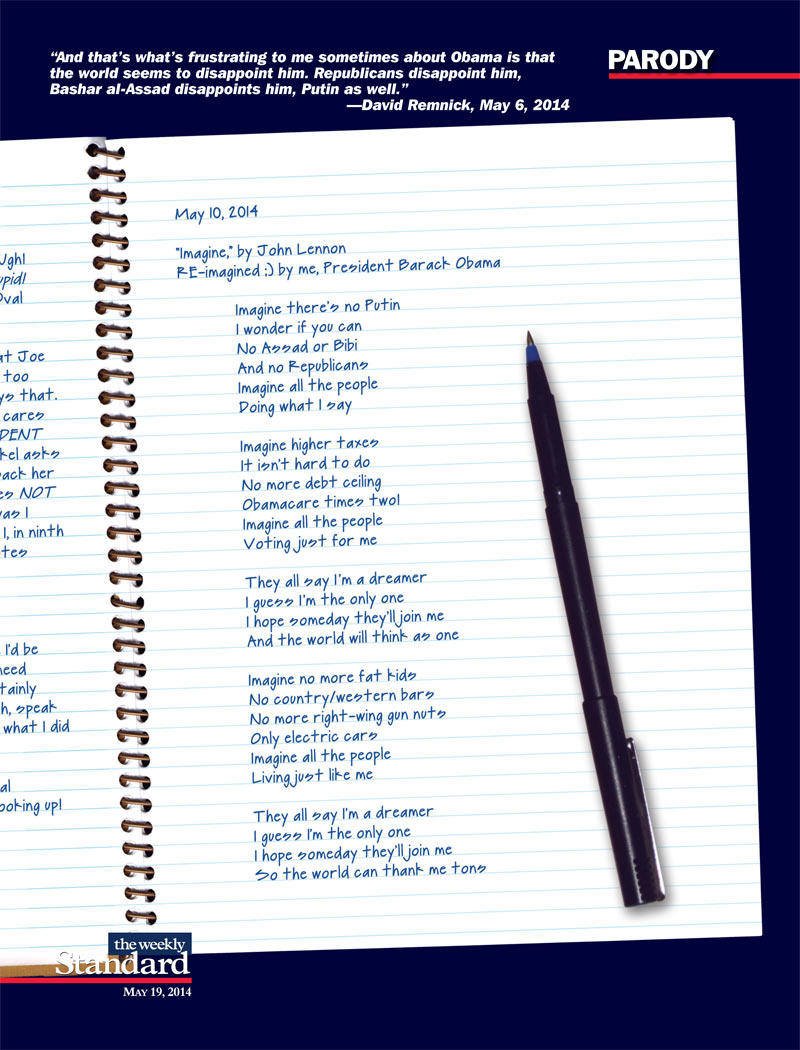 “And that’s what’s frustrating to me sometimes about Obama is that
the world seems to disappoint him. Republicans disappoint him,
Bashar al-Assad disappoints him, Putin as well.”
—David Remnick, May 6, 2014
PARODY
Ugh!
upid!
Oval
at Joe
too
ys that.
cares
DENT
kel asks
back her
es NOT
was I
I, in ninth
tes
I'd be
need
tainly
h, speak
what I did
al
ooking up!
May 10, 2014
"Imagine," by John Lennon
RE-imagined :) by me, President Barack Obama
Imagine there's no Putin
I wonder if you can
No Assad or Bibi
And no Republicans
Imagine all the people
Doing what I say
Imagine higher taxes
It isn't hard to do
No more debt ceiling
Obamacare times two!
Imagine all the people
Voting just for me
They all say I'm a dreamer
I guess I'm the only one
I hope someday they'll join me
And the world will think as one
Imagine no more fat kids
No country/western bars
No more right-wing gun nuts
Only electric cars
Imagine all the people
Living just like me
They all say I'm a dreamer
I guess I'm the only one
I hope someday they'll join me
So the world can thank me tons
the weekly
Standard
MAY 19, 2014